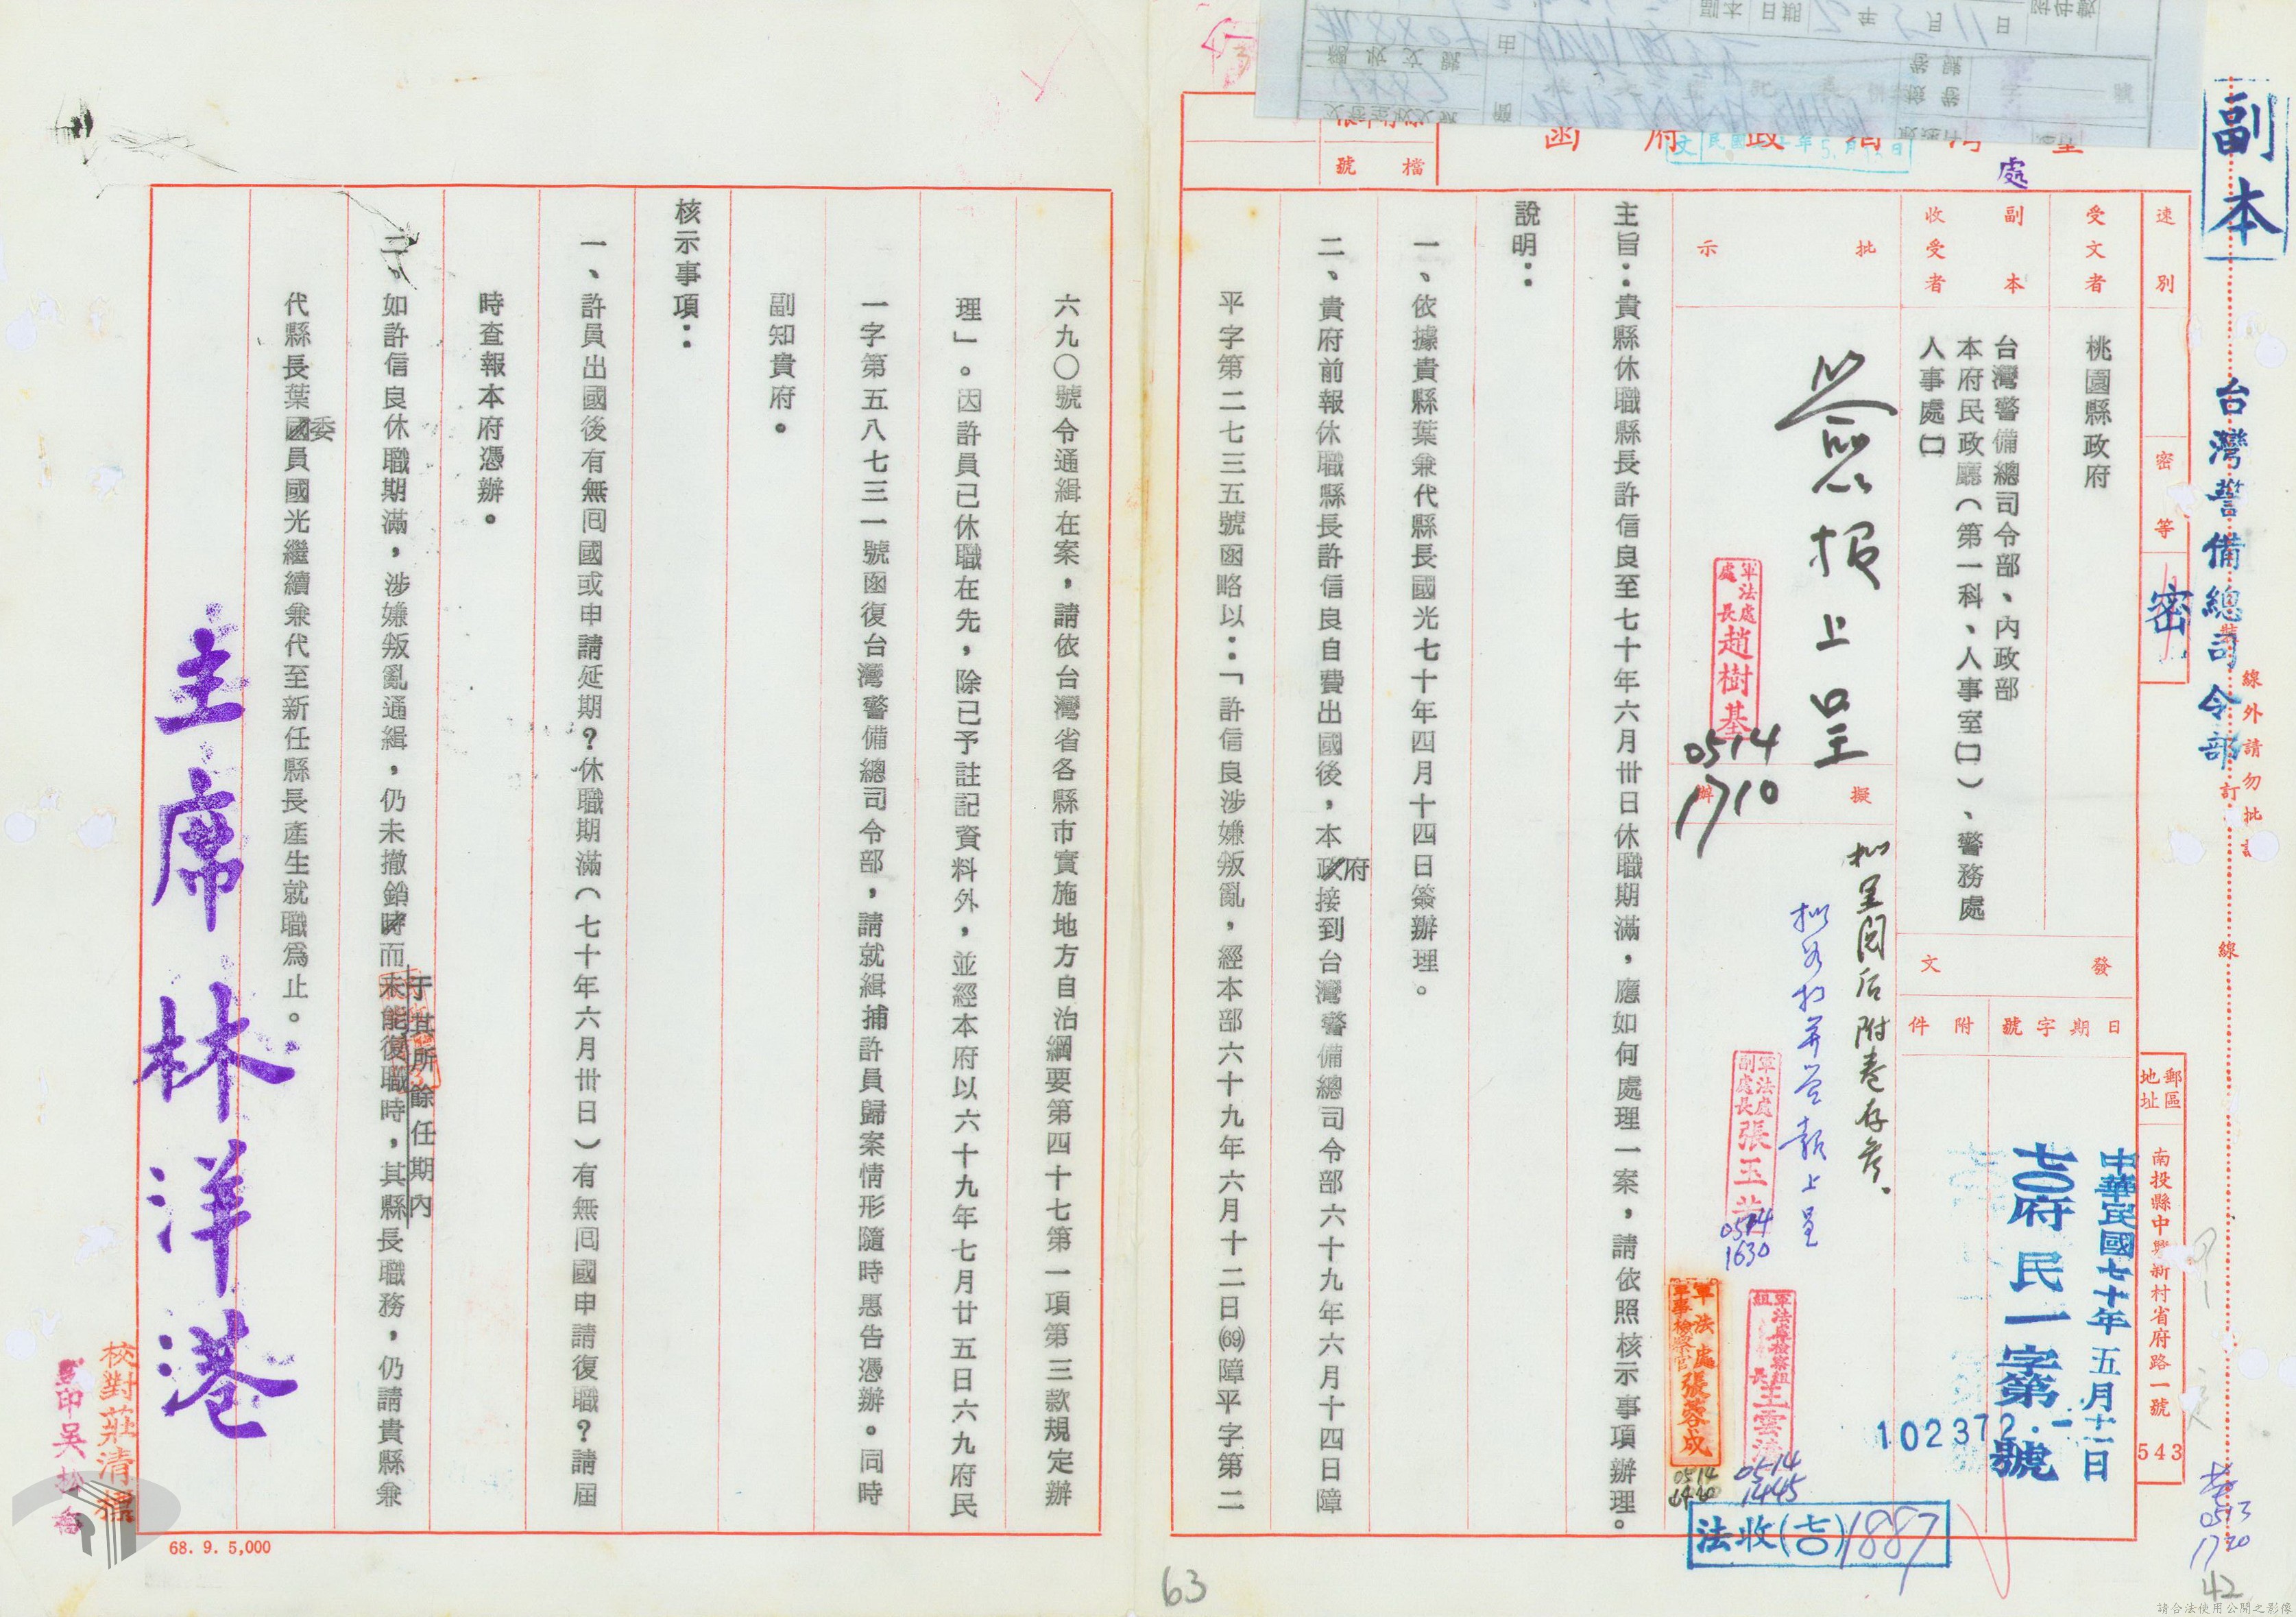 副本
台灣警備總司令部
線外請勿批
裝
訂
線
台灣省政府函
處
檔號
速別
密等
密
郵區地址
南投縣中興新村省府路一號
543
受文者
桃園縣政府
副本收受者
台灣警備總司令部、內政部
本府民政廳(第一科、人事室㈠)、警務處
人事處㈠
發文
日期字號
附件
中華民國七十年五月十二日
七〇府民一字第
102372號
批示
簽报上呈
軍法處處長趙樹基
0514
1710
擬辦
拟呈閱后附卷存參。
軍法處副處長張玉
0514
1630
軍法處檢察組組長王雲
0514
1445
軍法處軍事檢察官張蓉成
0514
法收(七〇)1887
主旨:貴縣休職縣長許信良至七十年六月卅日休職期滿,應如何處理一案,請依照核示事項辦理。
說明:
一、依據貴縣葉兼代縣長國光七十年四月十四日簽辦理。
二、貴府前報休職縣長許信良自費出國後,本府接到台灣警備總司令部六十九年六月十四日障
平字第二七三五號函略以:「許信良涉嫌叛亂,經本部六十九年六月十二日(69)障平字第二
六九〇號令通緝在案,請依台灣省各縣市實施地方自治綱要第四十七第一項第三款規定辦
理」。因許員已休職在先,除已予註記資料外,並經本府以六十九年七月廿五日六九府民
一字第五八七三一號函復台灣警備總司令部,請就緝捕許員歸案情形隨時惠告憑辦。同時
副知貴府。
核示事項:
一、許員出國後有無囘國或申請延期?休職期滿(七十年六月卅日)有無囘國申請復職?請屆
時查報本府憑辦。
二、如許信良休職期滿,涉嫌叛亂通緝,仍未撤銷時而未能復職時,其縣長職務,仍請貴縣兼
于其所餘任期內
代縣長葉委員國光繼續兼代至新任縣長產生就職爲止。
主席林洋港
校對莊清
監印吳
68. 9. 5,000
63
0513
1720
42
請合法使用公開之影像